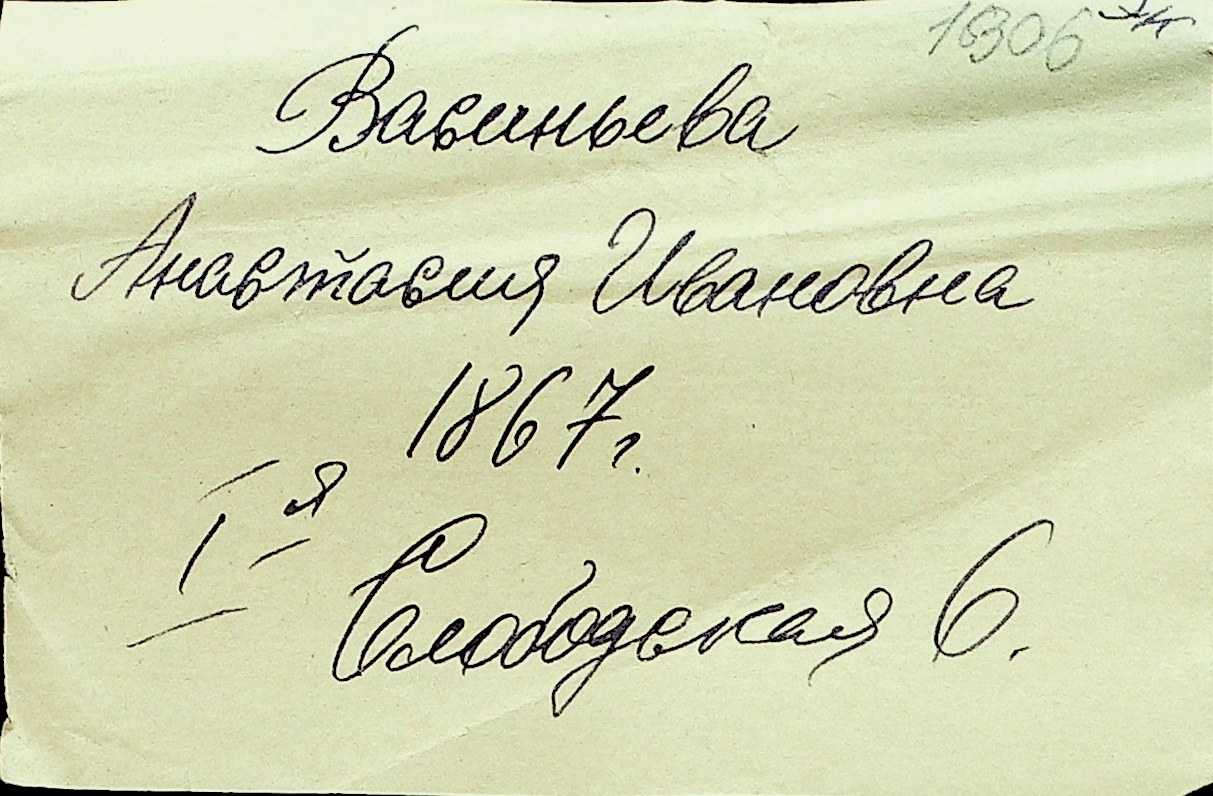 Васильева
Анастасия Ивановна
1867г.
I-я
Слободская 6.